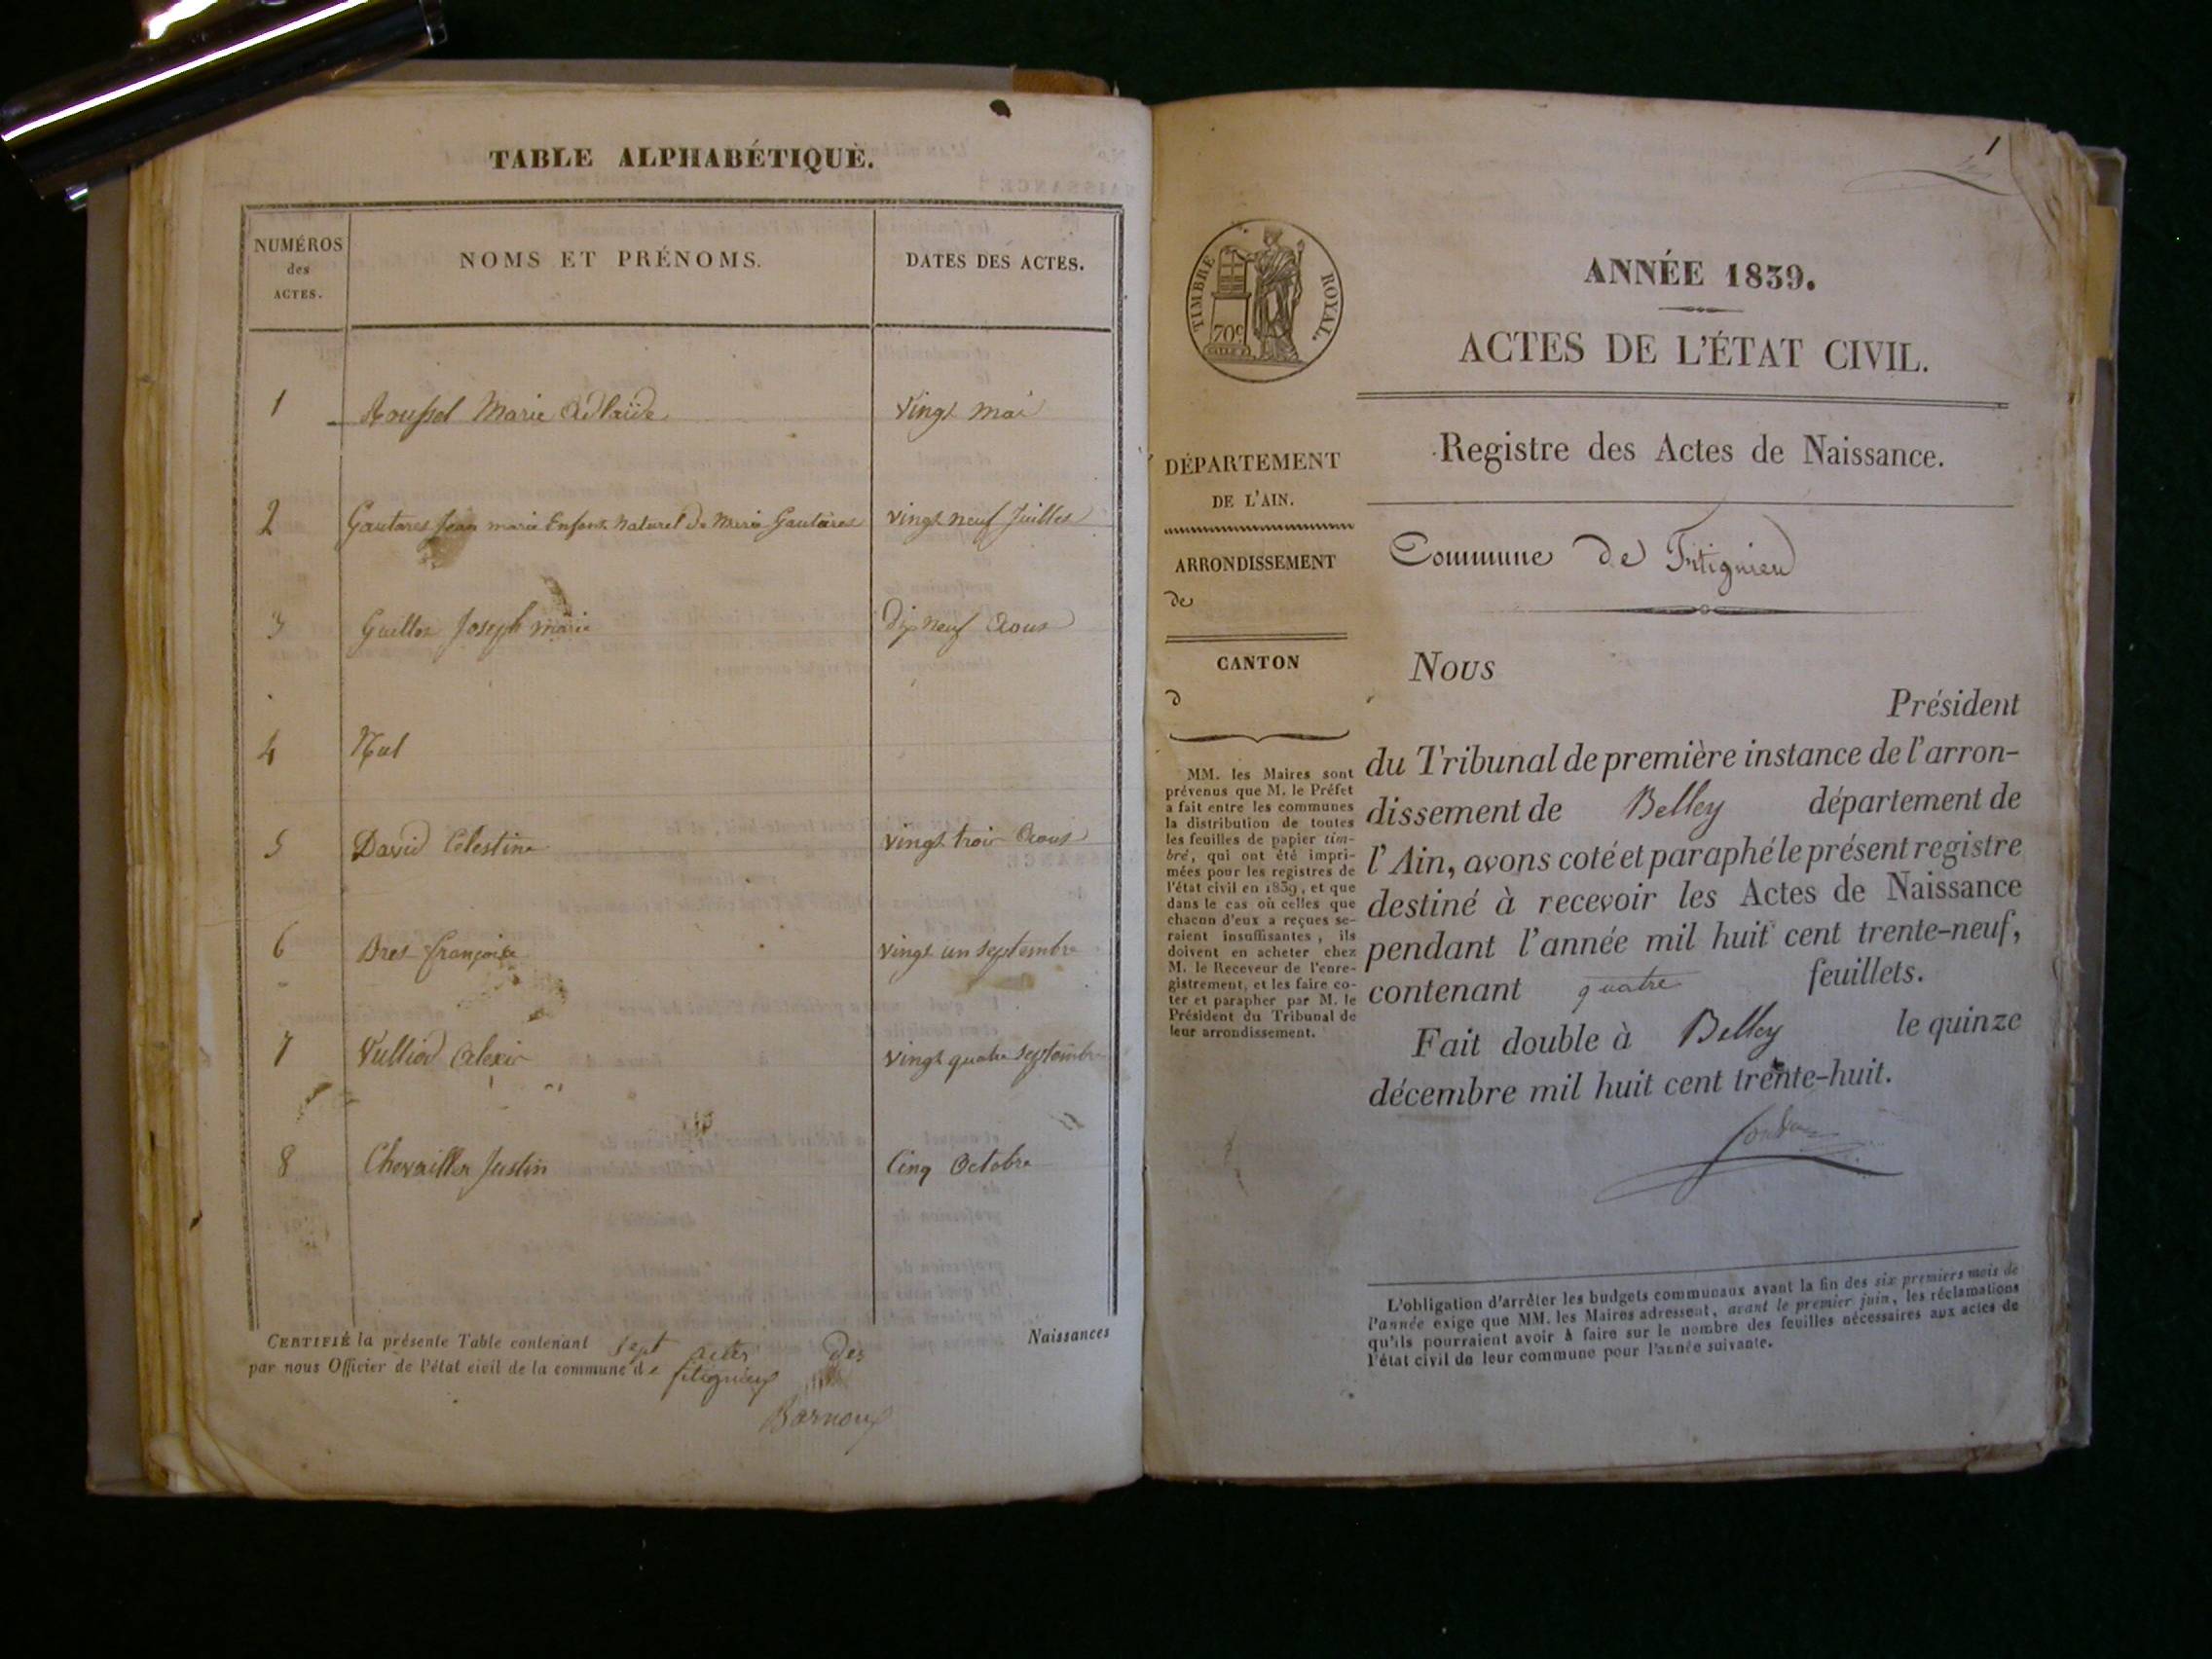 TABLE ALPHABÉTIQUE.
NUMÉROS
des
ACTES.
NOMS ET PRÉNOMS.
DATES DES ACTES.
1 Roussel Marie Adlaïde vingt mai
2 Gautares Jean marie Enfant Naturel De Marie Gautares vingt neuf Juillet
3 Guillot Joseph marie dix neuf Aout
4 Nul
5 David Celestine vingt trois Aout
6 Dres françoise vingt un septembre
7 Vulliod Alexis vingt quatre septembre
8 Chevailler Justin Cinq Octobre
CERTIFIÉ la présente Table contenant sept actes des Naissances
par nous Officier de l'état civil de la commune de fitignieu
1
TIMBRE ROYAL.
70c
ANNÉE 1839.
ACTES DE L'ÉTAT CIVIL.
DÉPARTEMENT
DE L'AIN.
ARRONDISSEMENT
de
CANTON
d
MM. les Maires sont
prévenus que M. le Préfet
a fait entre les communes
la distribution de toutes
les feuilles de papier tim-
bré, qui ont été impri-
mées pour les registres de
l'état civil en 1839, et que
dans le cas où celles que
chacun d'eux a reçues se-
raient insuffisantes, ils
doivent en acheter chez
M. le Receveur de l'enre-
gistrement, et les faire co-
ter et parapher par M. le
Président du Tribunal de
leur arrondissement.
Registre des Actes de Naissance.
Commune de Fitignieu
Nous
Président
du Tribunal de première instance de l'arron-
dissement de Belley département de
l'Ain, avons coté et paraphé le présent registre
destiné à recevoir les Actes de Naissance
pendant l'année mil huit cent trente-neuf,
contenant quatre feuillets.
Fait double à Belley le quinze
décembre mil huit cent trente-huit.
L'obligation d'arrêter les budgets communaux avant la fin des six premiers mois de
l'année exige que MM. les Maires adressent, avant le premier juin, les réclamations
qu'ils pourraient avoir à faire sur le nombre des feuilles nécessaires aux actes de
l'état civil de leur commune pour l'année suivante.